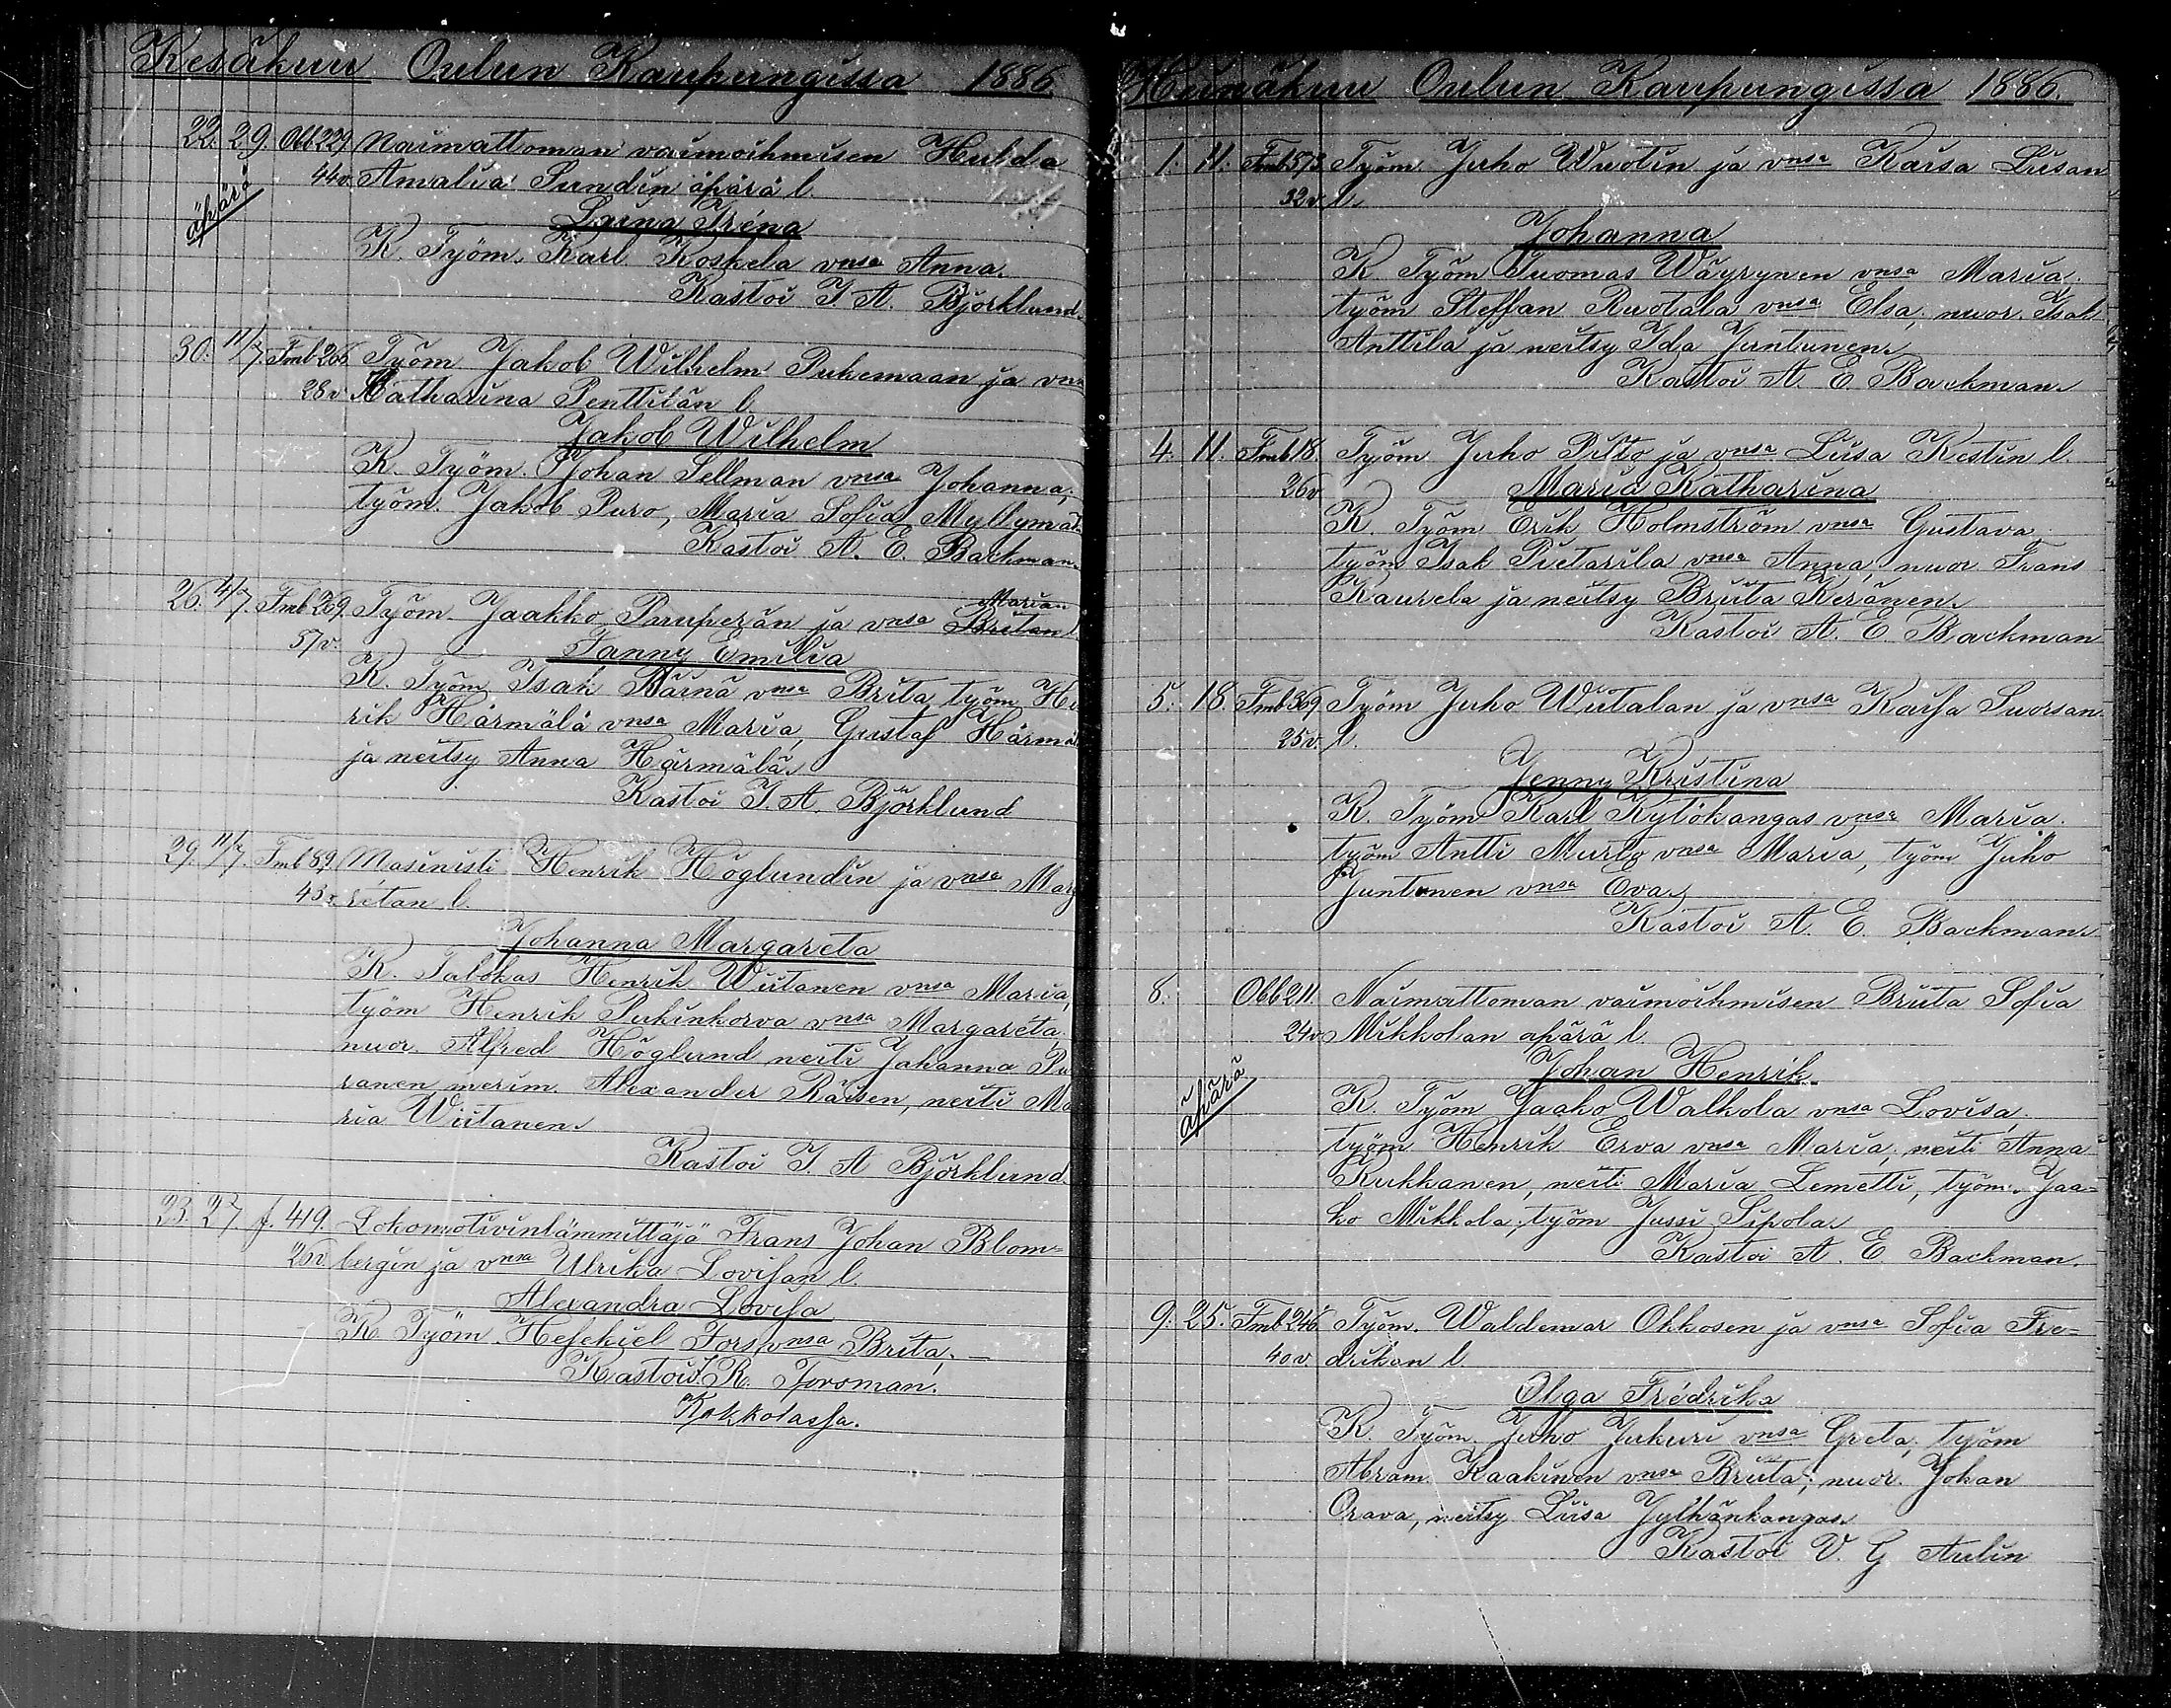 Kesäkuu Oulun Kaupungissa 1886.
22. 29. Obb 229 Naimattoman vaimoihmisen Hulda
44v. Amalia Sundin äpärä l.
äpärä
Laina Iréna
K. Työm. Karl Koskela vnsa Anna.
Kastoi J. A. Björklund.
30. 11/7. Tmb 266 Työm Jakob Wilhelm Pukemaan ja vnsa
28v Katharina Penttilän l.
Jakob Wilhelm
K. Työm. Johan Sellman vnsa Johanna;
työm. Jakob Puro, Maria Sofia Myllymäk
Kastoi A. E. Backman.
26. 4/7. Tmb 269. Työm. Jaakko Pauperän ja vnsa Maria
Britan l
37v.
Fanny Emilia
K. Työm Isak Häinä vnsa Brita, työm He
rik Härmälä vnsa Maria, Gustaf Härmäl
ja neitsy Anna Härmälä.
Kastoi J. A. Björklund
29. 11/7. Tmb 89, Masinisti Henrik Höglundin ja vnsa Marg
43v. retan l.
Johanna Margareta
K. Talokas Henrik Wiitanen vnsa Maria,
työm Henrik Pukinkorva vnsa Margareta,
nuor. Alfred Höglund neiti Johanna Pu
ranen merim. Alexander Räisen, neiti Ma
ria Wiitanen.
Kastoi J. A Björklund.
23. 27 f. 419. Lokomotivinlämmittäjä Frans Johan Blom=
25v. bergin ja vnsa Ulrika Lovisan l.
Alexandra Lovisa
K. Työm. Hesekiel Fors vnsa Brita,
Kastoi K. R. Forsman.
Kokkolassa.
Heinäkuu Oulun Kaupungissa 1886.
1. 11. Tmb 573 Työm. Juho Wuotin ja vnsa Kaisa Liisan
32v. l.
Johanna
K Työm Tuomas Wäyrynen vnsa Maria;
työm Steffan Ruotala vnsa Elsa; nuor. Isak
Anttila ja neitsy Ida Juntunen.
Kastoi A. E Backman.
4. 11. Tmb 18. Työm Juho Piitto ja vnsa Liisa Kestin l.
26v
Maria Katharina
K. Työm Erik Holmström vnsa Gustava,
työm Isak Pietarila vnsa Anna, nuor Frans
Kaurela ja neitsy Briita Keränen.
Kastoi A. E. Backman
5. 18. Tmb 369 Työm Juho Wiitalan ja vnsa Kaisa Suorsan
25v. l.
Jenny Kristina
K. Työm Karl Kylökangas vnsa Maria.
työm Antti Murto vnsa Maria, työm Juho
Juntunen vnsa Eva.
Kastoi A. E. Backman.
8. Obb 211. Naimattoman vaimoihmisen Briita Sofia
24v Mikkolan äpärä l.
äpärä
Johan Henrik
K. Työm Jaako Walkola vnsa Lovisa,
työm Henrik Erva vnsa Maria, neiti Anna
Kukkanen, neiti Maria Lemetti, työm. Jaa=
ko Mikkola, työm Jussi Sipola.
Kastoi A. E. Backman.
9. 25. Tmb 246 Työm. Waldemar Okkosen ja vnsa Sofia Fre=
40v. drikan l
Olga Fredrika
K. Työm. Juho Jukuri vnsa Greta, työm
Abram Kaakinen vnsa Briita; nuor. Johan
Orava, neitsy Liisa Jylhänkangas.
Kastoi V. G Aulin